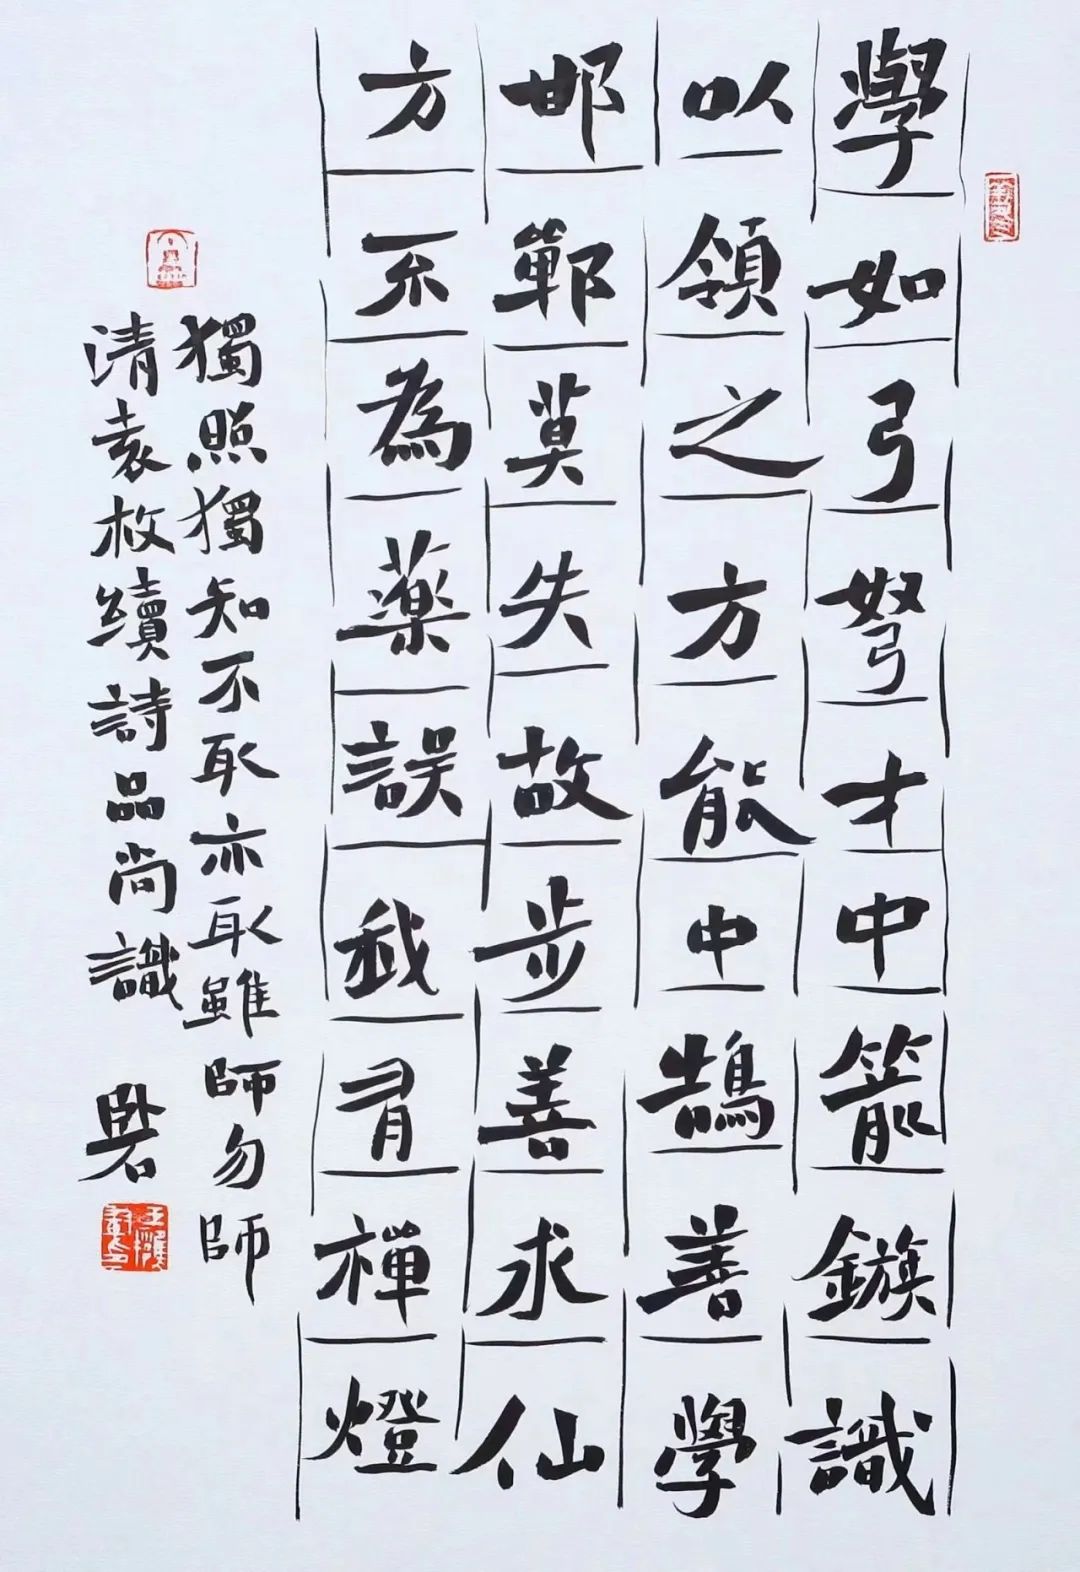 學如弓弩才中箭鏃識
以領之方能中鵠善學
邯鄲莫失故步善求仙
方不為藥誤我有禪燈
獨照獨知不取亦取雖師勿師
清袁枚續詩品尚識